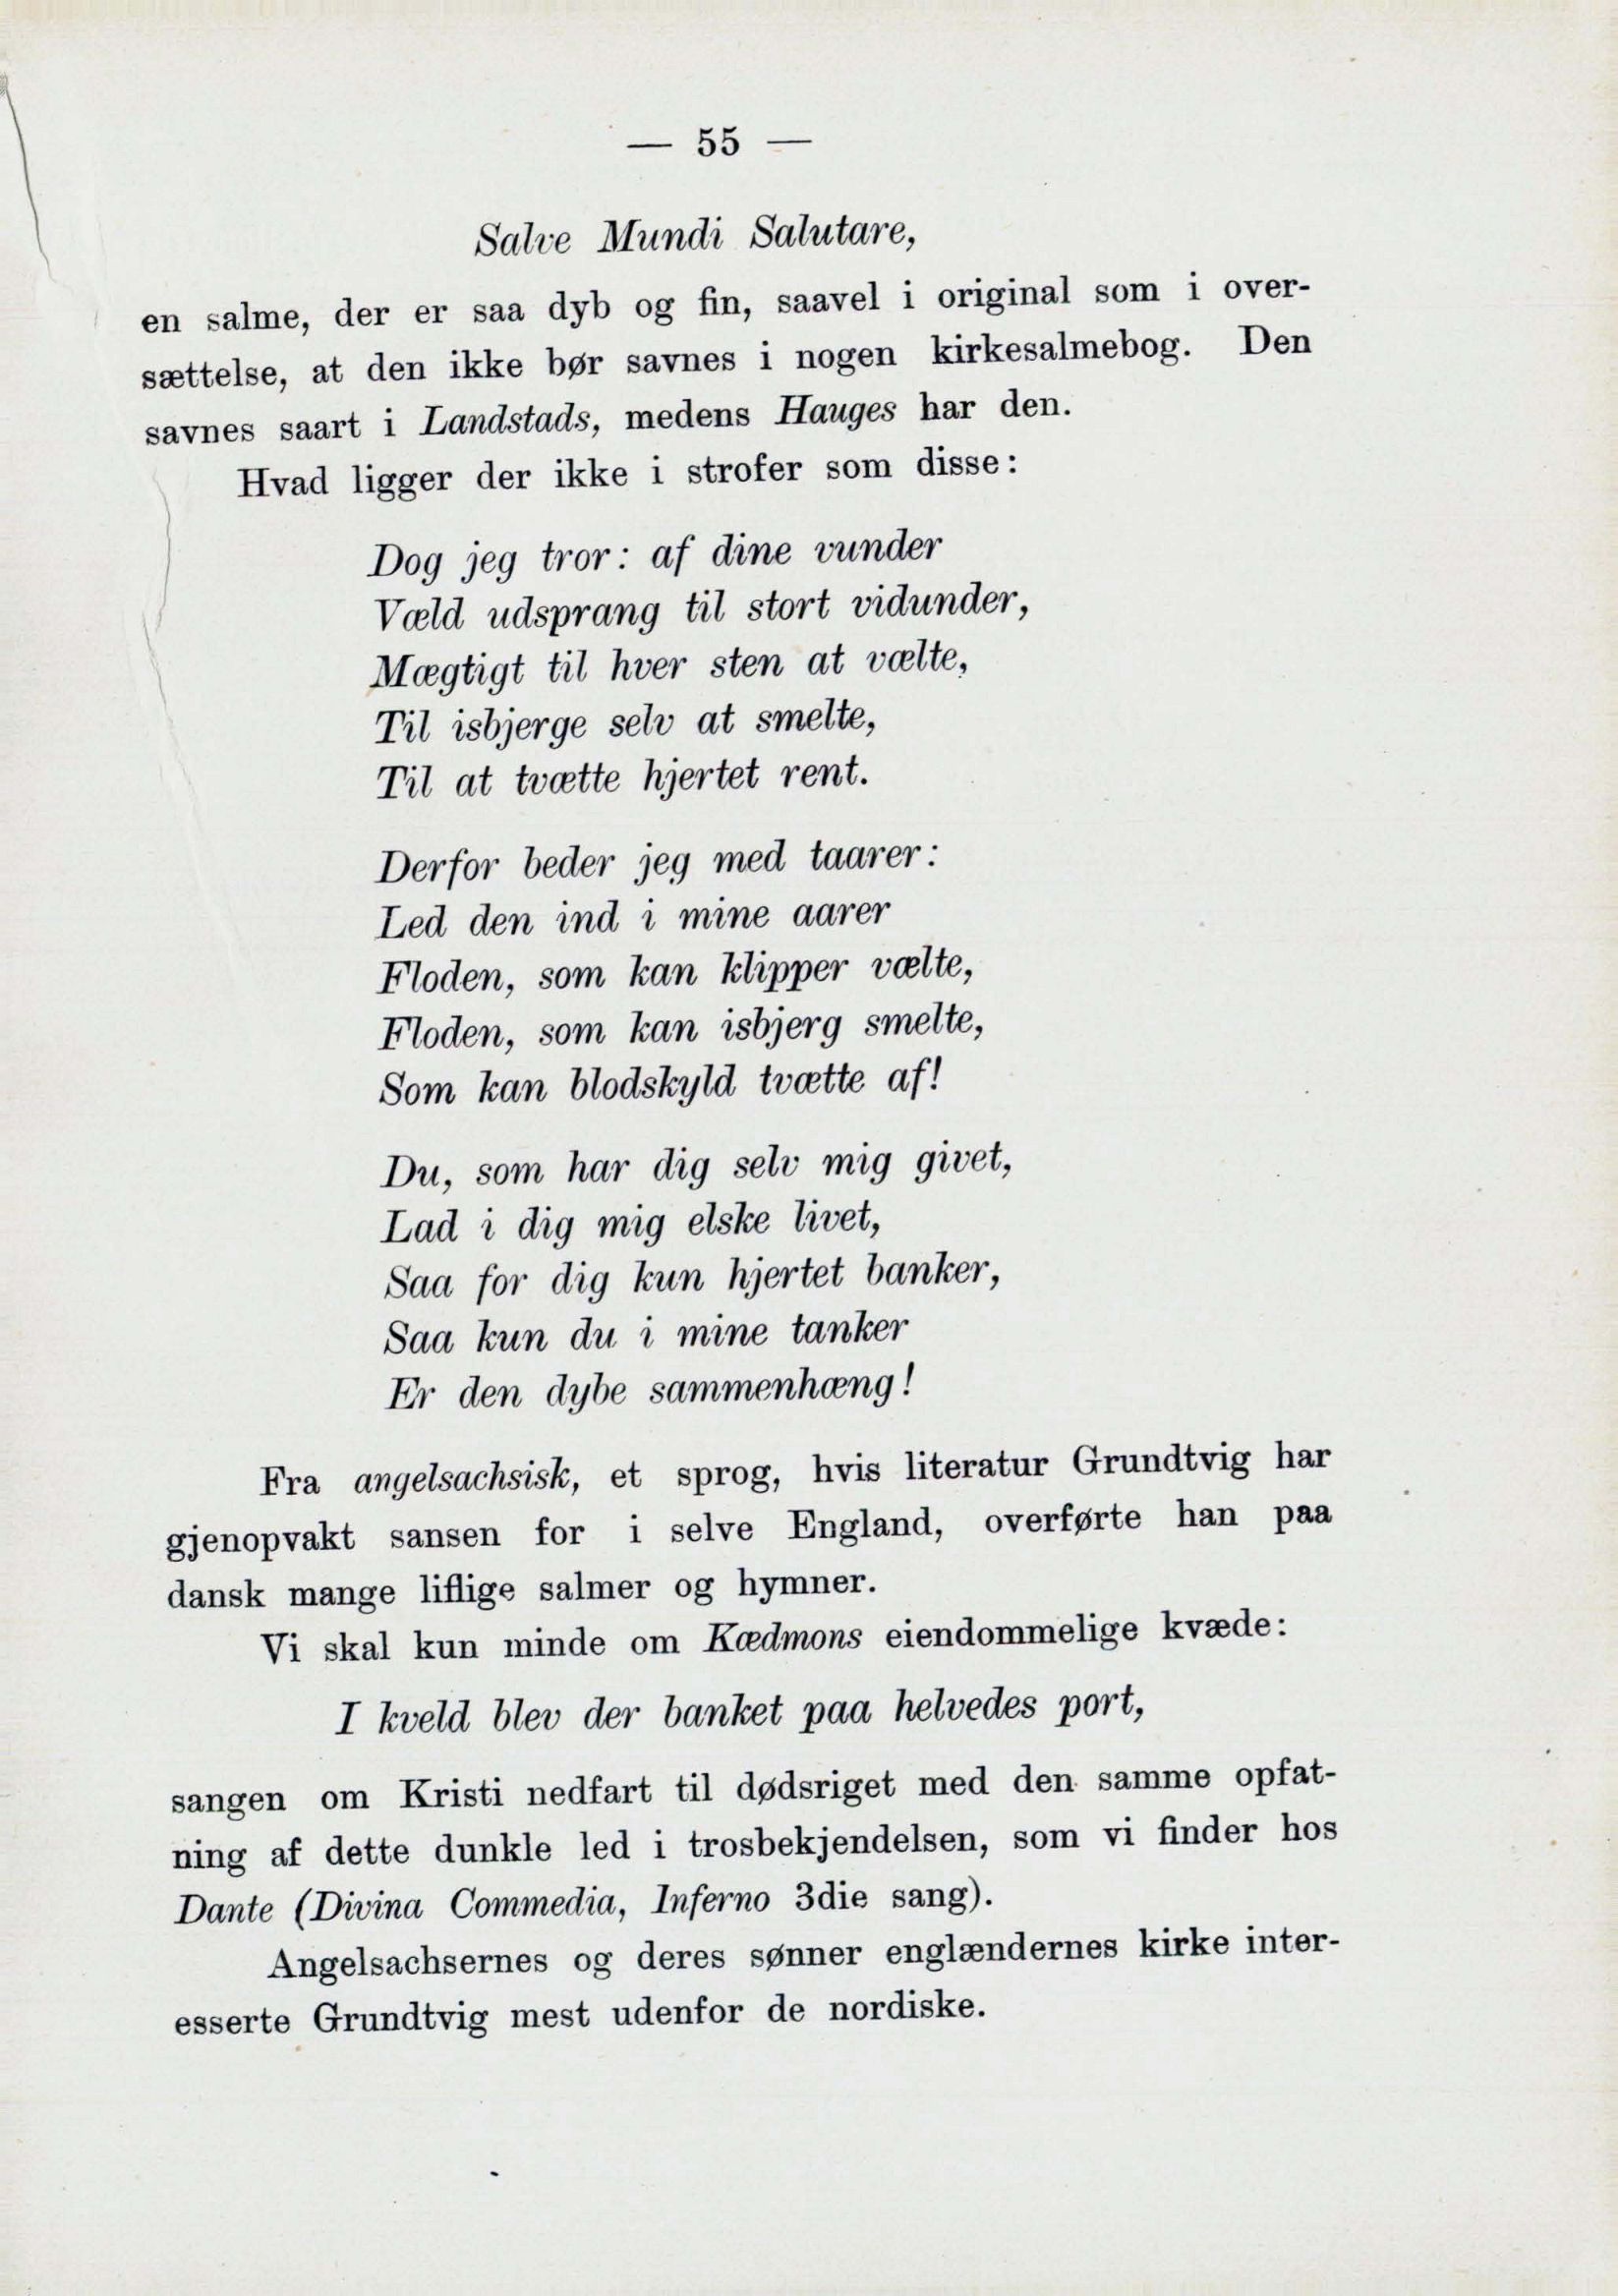 — 55 —
Salve Mundi Salutare,
en salme, der er saa dyb og fin, saavel i original som i over-
sættelse, at den ikke bør savnes i nogen kirkesalmebog. Den
savnes saart i Landstads, medens Hauges har den.
Hvad ligger der ikke i strofer som disse:
Dog jeg tror: af dine vunder
Væld udsprang til stort vidunder,
Mægtigt til hver sten at vælte,
Til isbjerge selv at smelte,
Til at tvætte hjertet rent.
Derfor beder jeg med taarer:
Led den ind i mine aarer
Floden, som kan klipper vælte,
Floden, som kan isbjerg smelte,
Som kan blodskyld tvætte af!
Du, som har dig selv mig givet,
Lad i dig mig elske livet,
Saa for dig kun hjertet banker,
Saa kun du i mine tanker
Er den dybe sammenhæng!
Fra angelsachsisk, et sprog, hvis literatur Grundtvig har
gjenopvakt sansen for i selve England, overførte han paa
dansk mange liflige salmer og hymner.
Vi skal kun minde om Kædmons eiendommelige kvæde:
I kveld blev der banket paa helvedes port,
sangen om Kristi nedfart til dødsriget med den samme opfat-
ning af dette dunkle led i trosbekjendelsen, som vi finder hos
Dante (Divina Commedia, Inferno 3die sang).
Angelsachsernes og deres sønner englændernes kirke inter-
esserte Grundtvig mest udenfor de nordiske.